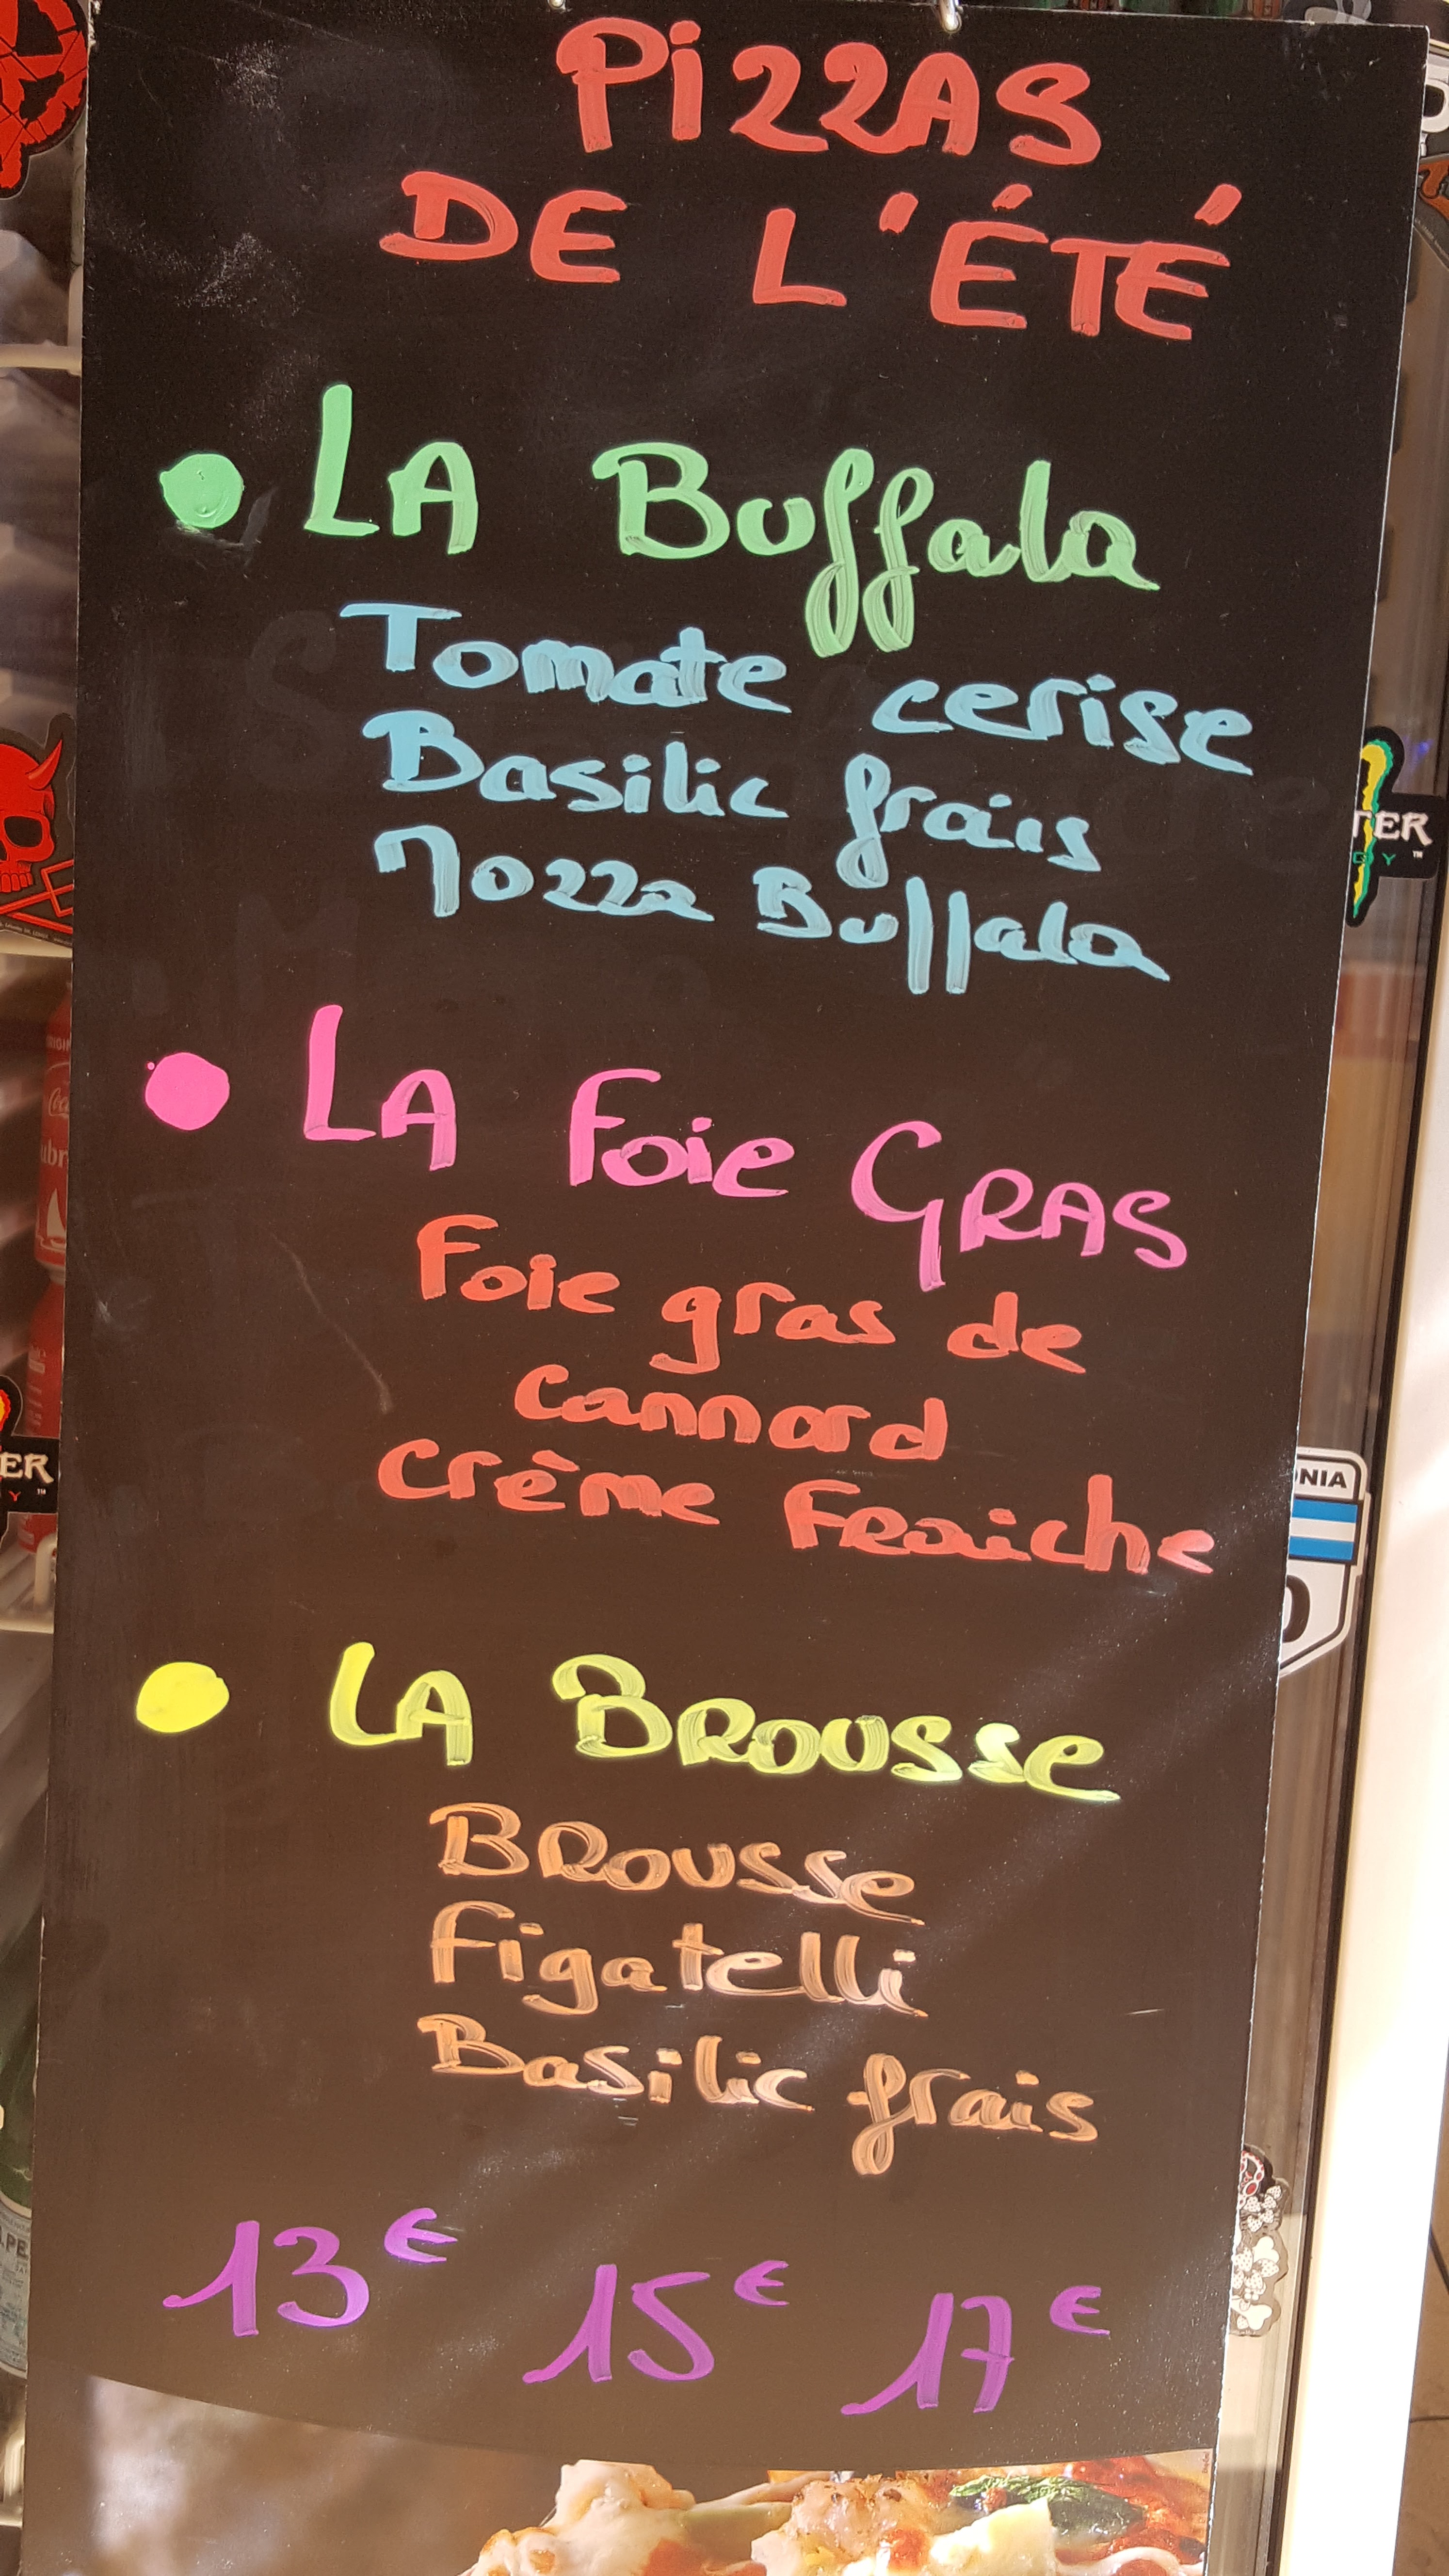 PiZZAS
DE L'ÉTÉ
LA Buffala
Tomate cerise
Basilic frais
Mozza Buffala
LA Foie GRAS
Foie gras de
Cannard
Crème Fraiche
LA BROUSSe
BROUSSe
Figatelli
Basilic frais
13€ 15€ 17€
TER
ER
NIA